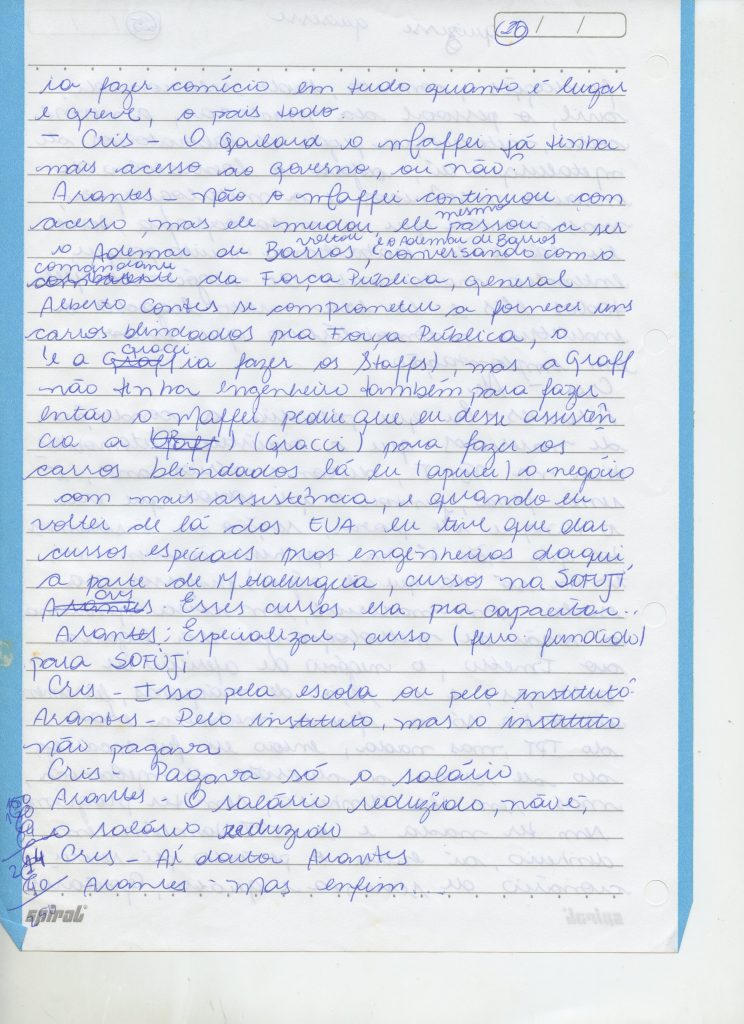 20 / /
ia fazer comício em tudo quanto é lugar
e greve, o país todo
- Cris - O Goulard o Maffei já tinha
mais acesso ao governo, ou não?
Arantes - Não o Maffei continuou com
acesso, mas ele mudou, ele mesmo passou a ser
o Ademar de Barros, voltou e o Ademar de Barros conversando com o
comandante da Força Pública, general
Alberto Contes se comprometeu a fornecer uns
carros blindados pra Força Pública, o
(e a Gracci ia fazer os Staffs), mas a Graff
não tinha engenheiro também para fazer
então o Maffei pediu que eu desse assistên
cia a (Gracci) para fazer os
carros blindados lá eu (apurei) o negócio
com mais assistência, e quando eu
voltei de lá dos EUA eu tive que dar
cursos especiais pros engenheiros daqui,
a parte de Metalurgia, cursos na SOFUJI
Cris Esses cursos era pra capacitar...
Arantes: Especializar, curso (ferro fundido)
para SOFUJI
Cris - Isso pela escola ou pelo instituto?
Arantes - Pelo instituto, mas o instituto
não pagava
Cris - Pagava só o salário
Arantes - O salário reduzido, não é,
o salário reduzido
Cris - Aí doutor Arantes
Arantes - Mas enfim...
spiral